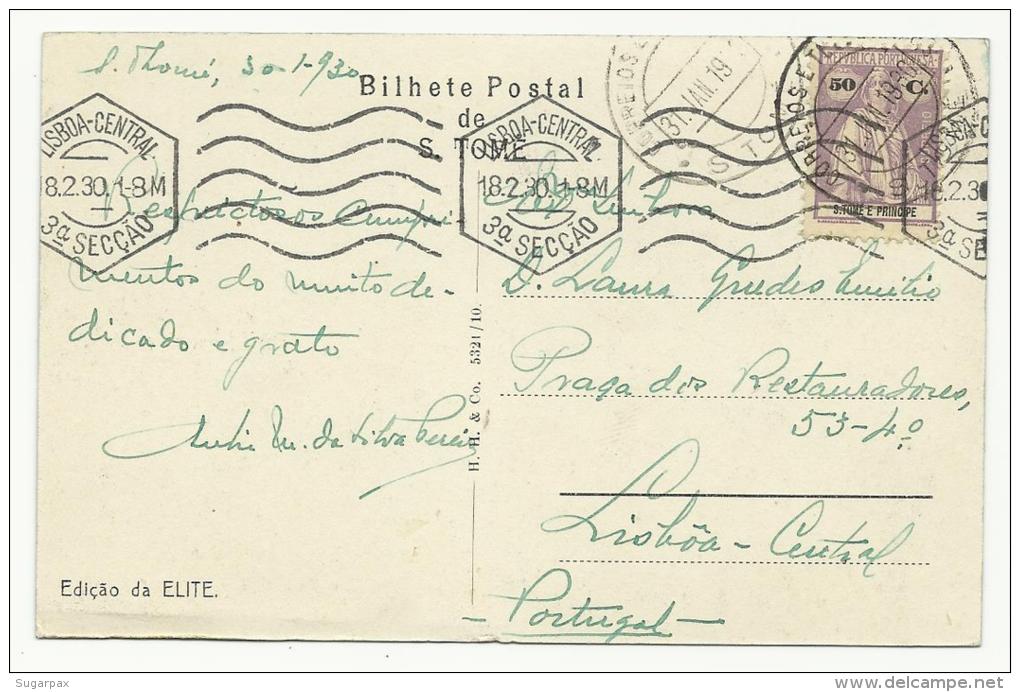 S. Thomé, 30-1-930
Bilhete Postal
de
S. TOMÉ
LISBOA-CENTRAL
18.2.30. 1-8M
3ª SECÇÃO
LISBOA-CENTRAL
18.2.30. 1-8M
3ª SECÇÃO
CORREIOS E
31. JAN. 19
S. TO
CORREIOS E
REPVBLICA PORTVGVESA
50 C.
S. TOMÉ E PRINCIPE
18.2.3
3ª SE
Respeitosos cumpri-
mentos do muito de-
dicado e grato
da Silva
Senhora
D. Laura Guedes
Praça dos Restauradores,
53-4º
Lisbôa - Central
- Portugal -
H. H. & Co. 5321/10.
Edição da ELITE.
Sugarpax
www.delcampe.net